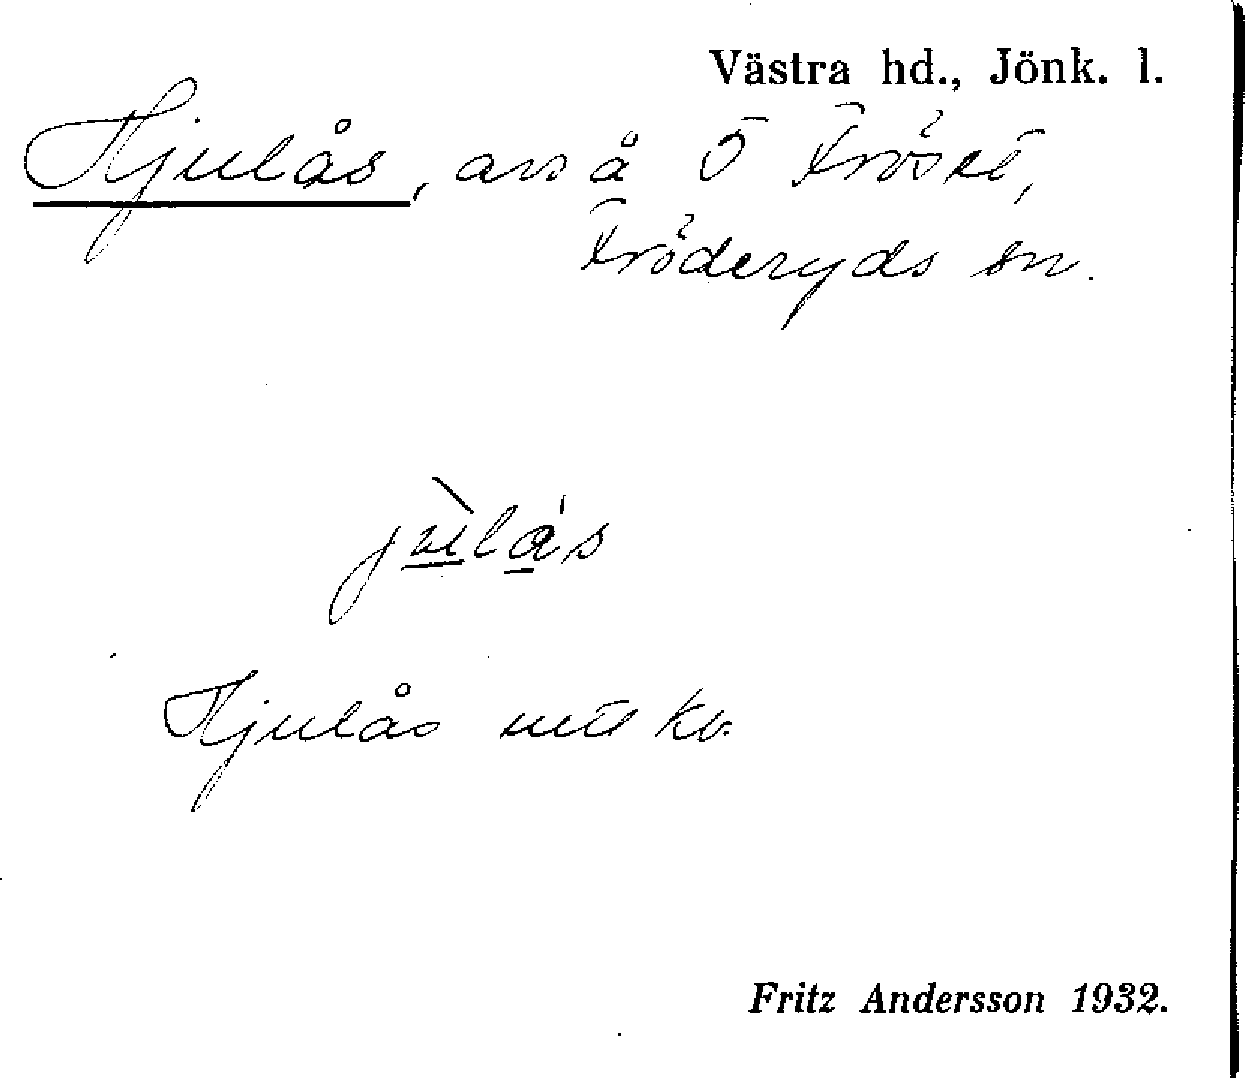 Västra hd., Jönk. l.
Hjulås, avs å Ö Fröset,
Fröderyds sn.
jùlås
Hjulås utk kv.
Fritz Andersson 1932.